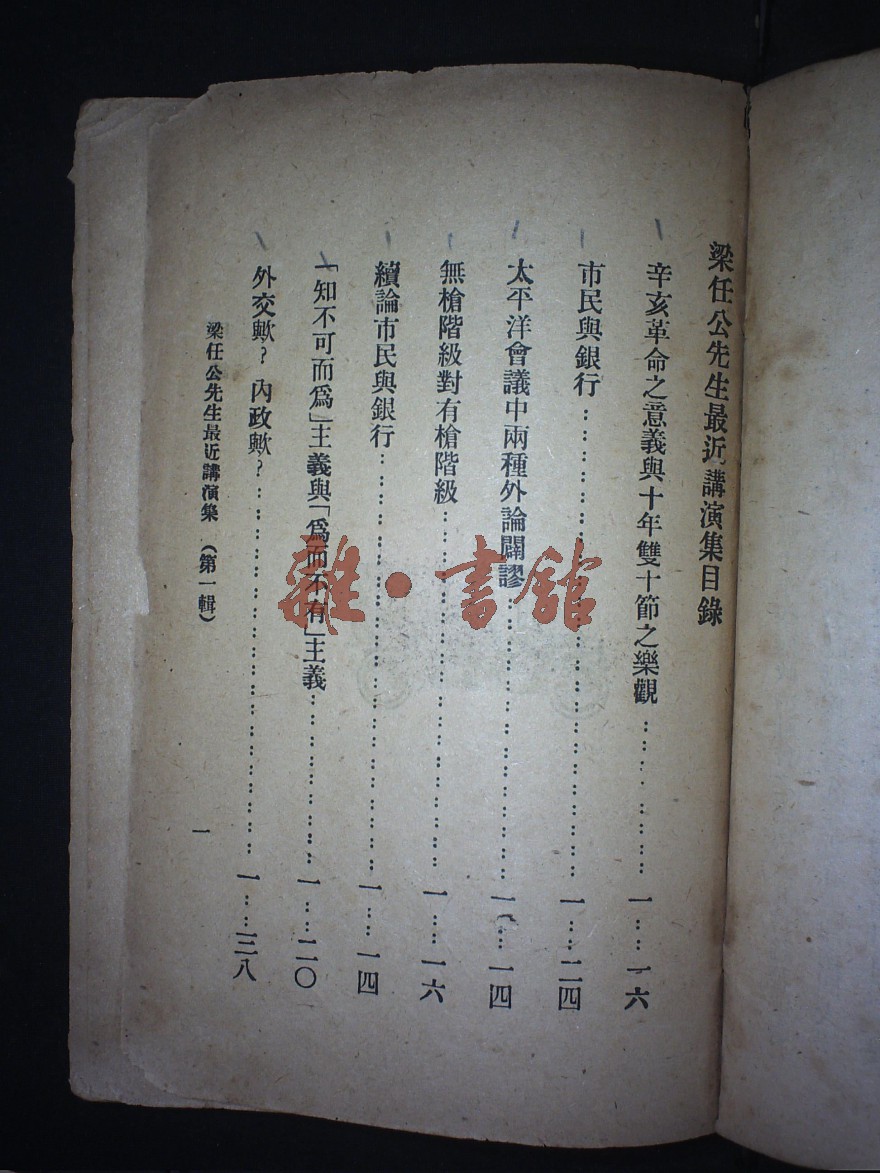 梁任公先生最近講演集目錄
辛亥革命之意義與十年雙十節之樂觀……………一……一六
市民與銀行……………………………………一……二四
太平洋會議中兩種外論闢謬……………………一……一四
無槍階級對有槍階級……………………………一……一六
續論市民與銀行…………………………………一……一四
「知不可而爲」主義與「爲而不有」主義……………一……二〇
外交歟?內政歟?………………………………一……三八
梁任公先生最近講演集 (第一輯)
一
雜·書館